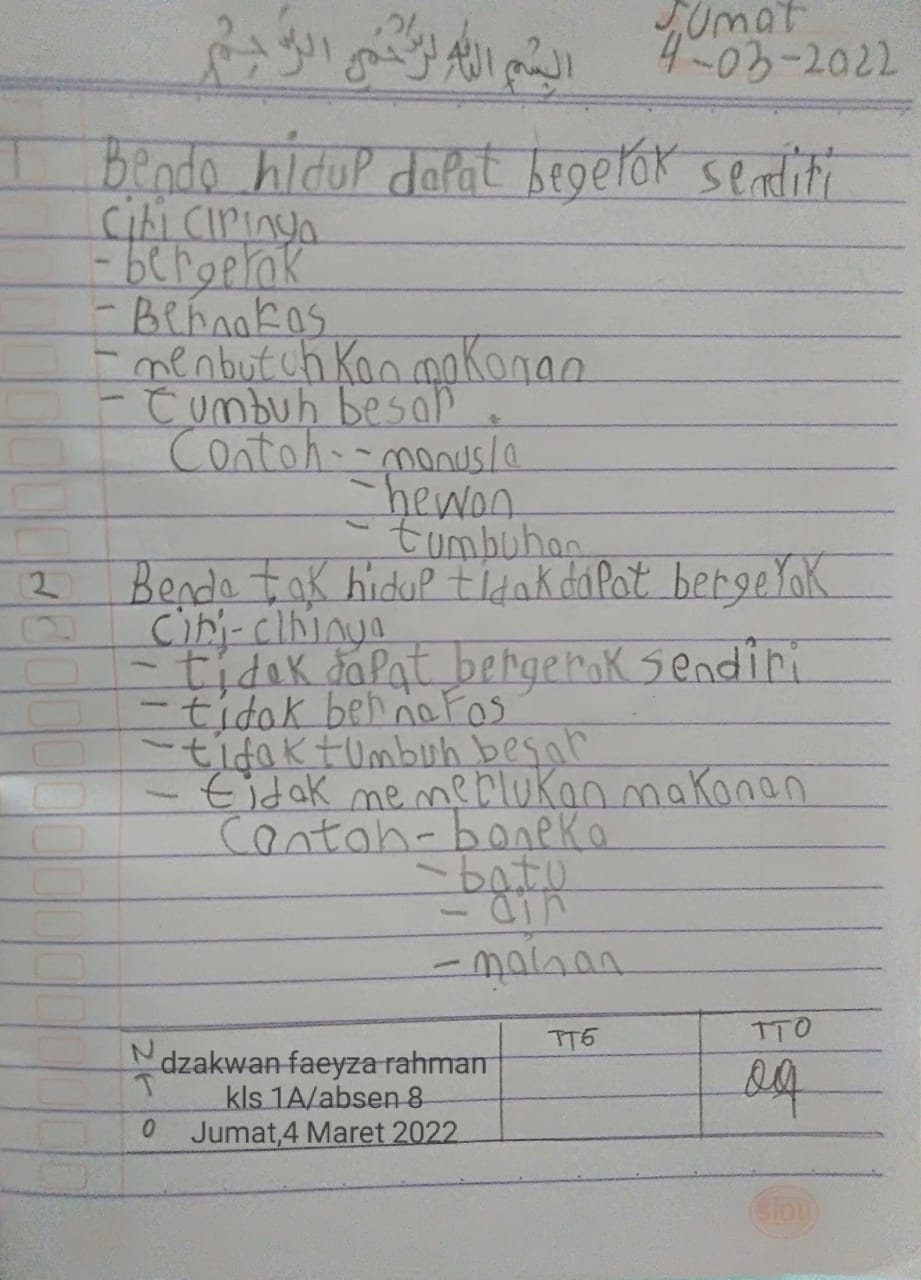 Jumat
4-03-2022
1 Benda hidup dapat begerak sendiri
ciri cirinya
- bergerak
- Bernakas
- menbutuhkan makanan
- tumbuh besar .
Contoh - - manusia
- hewan
- tumbuhan
2 Benda tak hidup tidak dapat bergerak
ciri-cirinya
- tidak dapat bergerak sendiri
- tidak bernafas
- tidak tumbuh besar
- tidak memerlukan makanan
Contoh - boneka
- batu
- air
- mainan
N dzakwan faeyza rahman TTG TTO
T kls 1A/absen 8
O Jumat,4 Maret 2022
SIDU